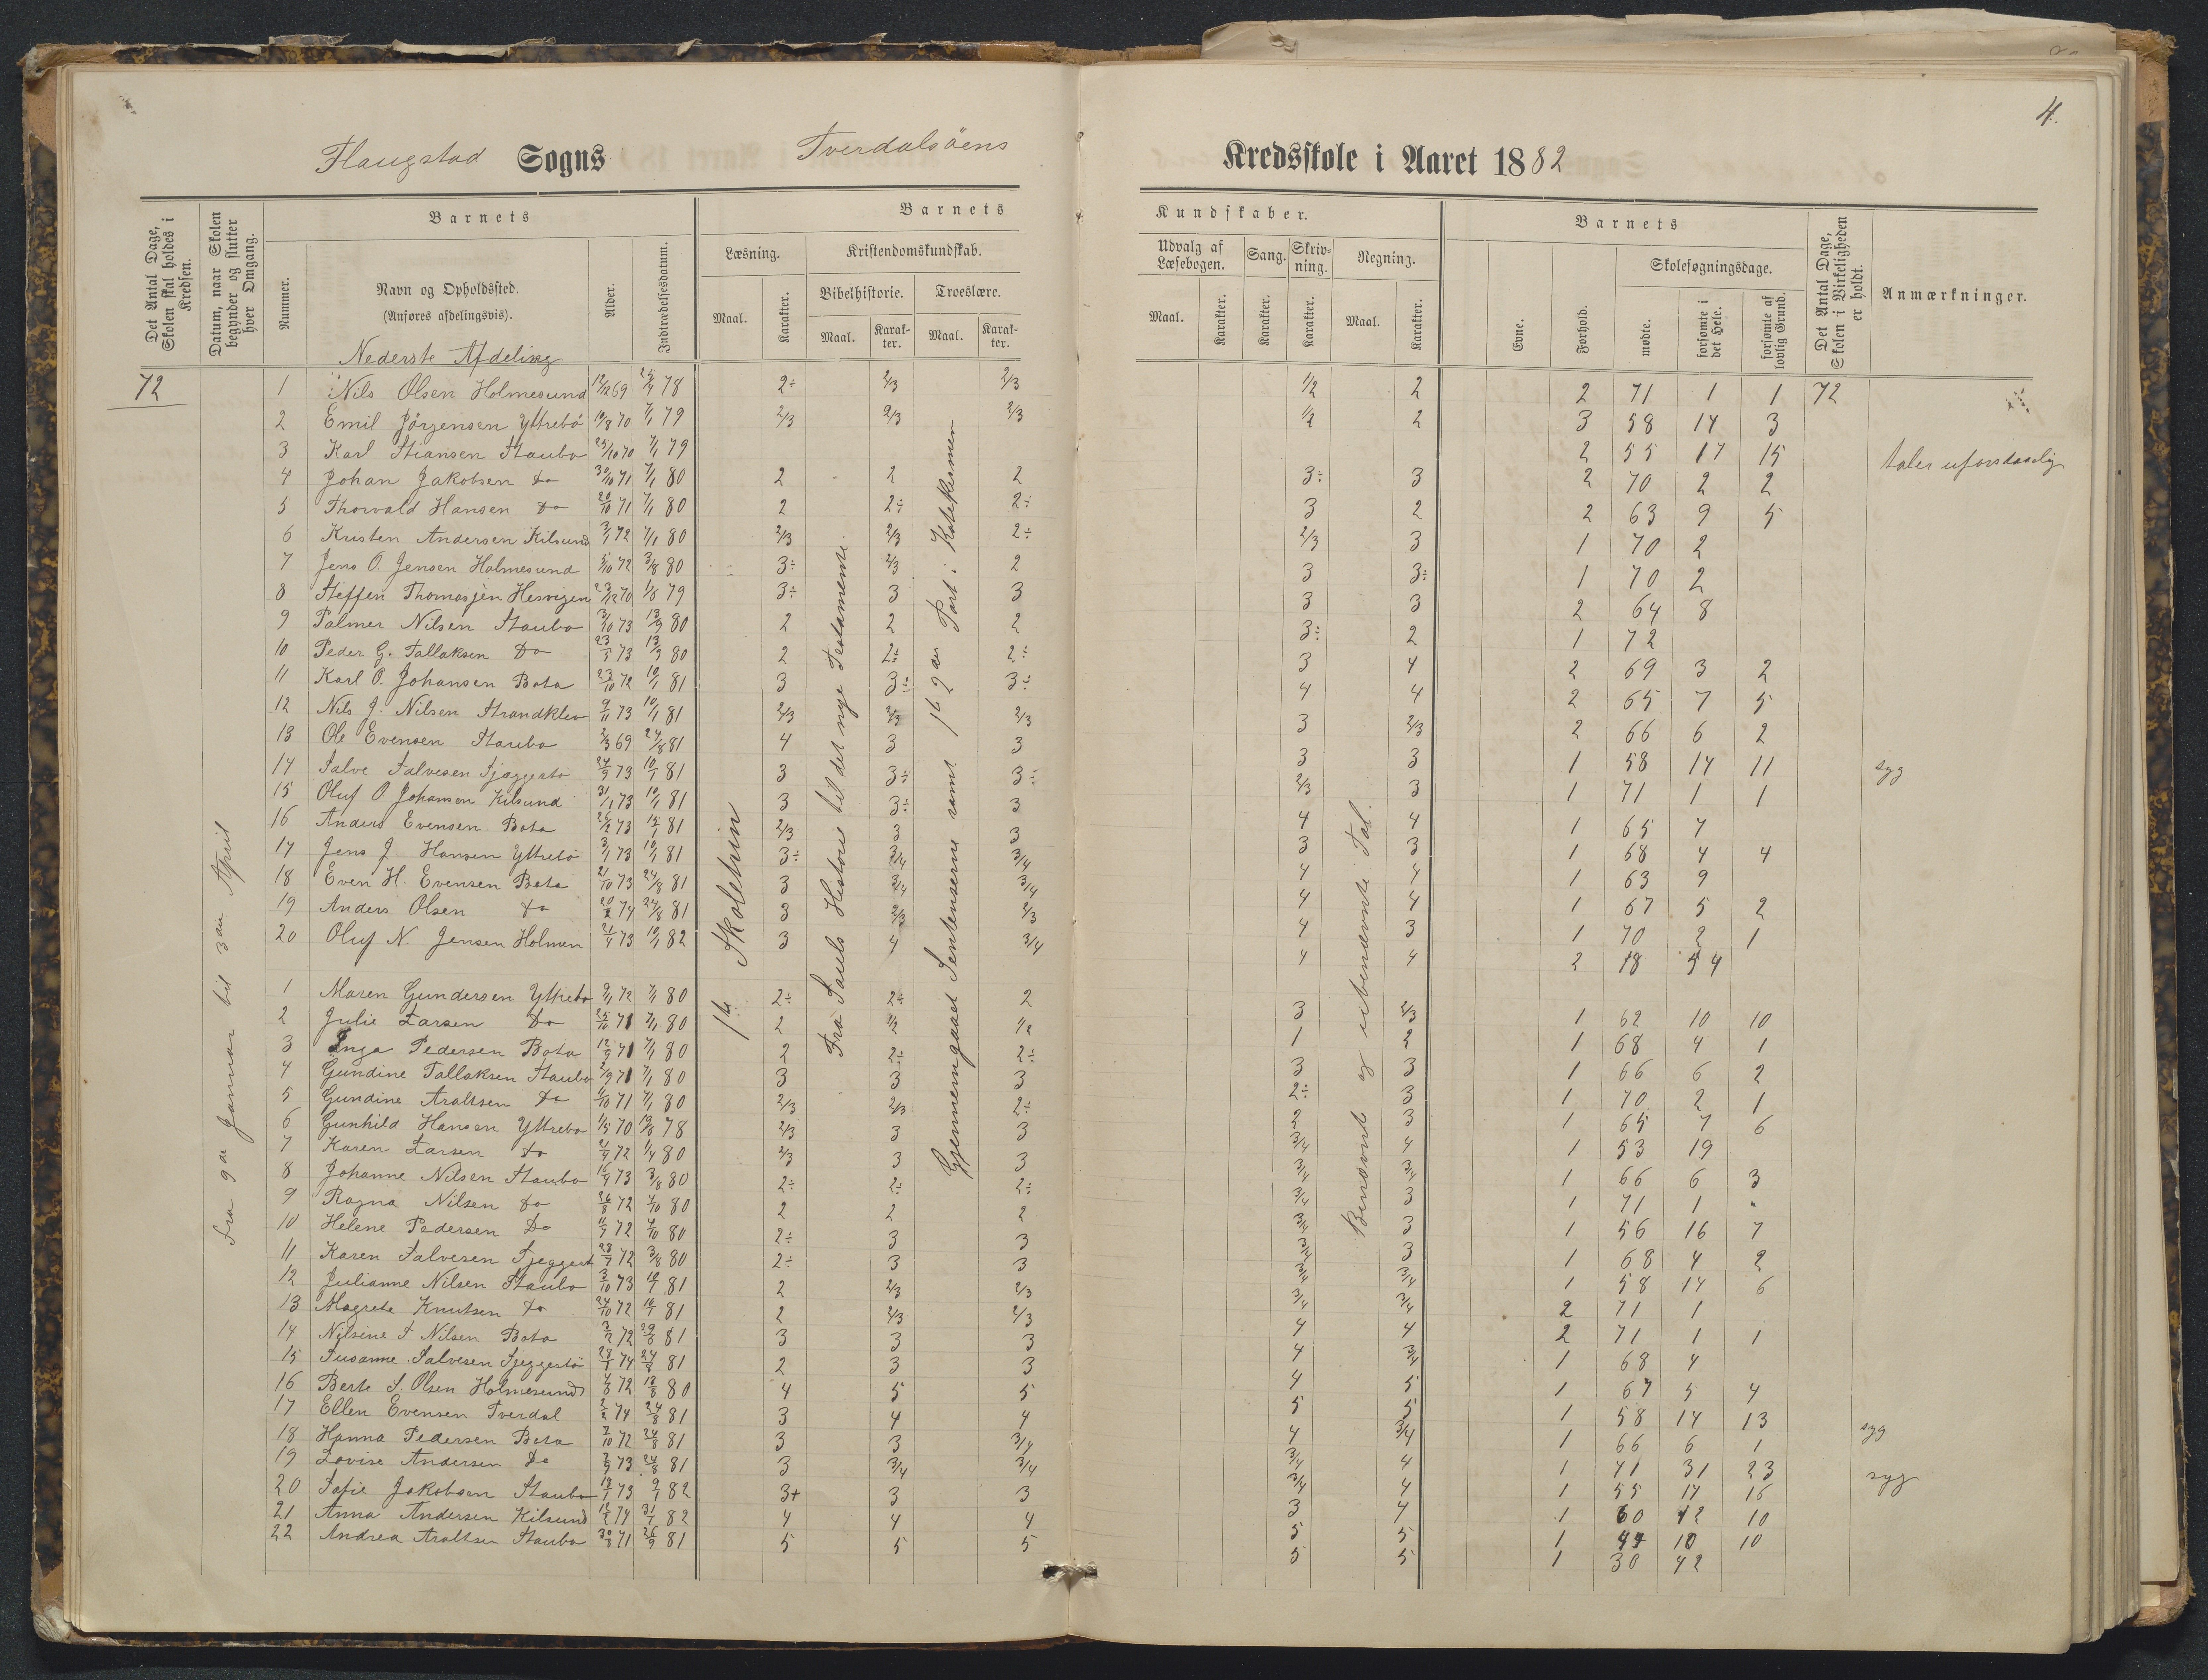 4.
Flaugstad Sogns Tverdalsöens Kredsskole i Aaret 1882
Det Antal Dage, Skolen skal holdes i Kredsen.
Datum, naar Skolen begynder og slutter hver Omgang.
Barnets
Nummer.
Navn og Opholdssted.
(Anføres afdelingsvis).
Alder.
Indtrædelsesdatum.
Barnets Kundskaber.
Læsning.
Maal.
Karakter.
Kristendomskundskab.
Bibelhistorie.
Maal.
Karakter.
Troeslære.
Maal.
Karakter.
Udvalg af Læsebogen.
Maal.
Karakter.
Sang.
Karakter.
Skrivning.
Karakter.
Regning.
Maal.
Karakter.
Barnets
Evne.
Forhold.
Skolesøgningsdage.
mødte.
forsømte i det Hele.
forsømte af lovlig Grund.
Det Antal Dage, Skolen i Virkeligheden er holdt.
Anmærkninger.
Nederste Afdeling
72
Fra 9de Januar til 3die April
1 Nils Olsen Holmesund 12/12 69 25/4 78 2÷ 2/3 2/3 1/2 2 2 71 1 1 72
2 Emil Jörgensen Yttrebö 19/8 70 7/1 79 2/3 2/3 2/3 1/2 2 3 58 14 3
3 Karl Stiansen Staubo 25/10 70 7/1 79 2 55 17 15 taler uforstaaelig
4 Johan Jakobsen Do 30/10 71 7/1 80 2 2 2 3÷ 3 2 70 2 2
5 Thorvald Hansen Do 20/10 71 7/1 80 2 2÷ 2÷ 3 2 2 63 9 5
6 Kristen Andersen Kilsund 3/1 72 7/1 80 2/3 2/3 2÷ 2/3 3 1 70 2
7 Jens O. Jensen Holmesund 5/10 72 3/8 80 3÷ 2/3 2 3 3÷ 1 70 2
8 Steffen Thomasjen Hesvigen 23/12 70 1/8 79 3÷ 3 3 3 3 2 64 8
9 Palmer Nilsen Staubo 3/10 73 13/9 80 2 2 2 3÷ 2 1 72
10 Peder G. Tallaksen Do 23/3 73 13/9 80 2 2÷ 2÷ 3 4 2 69 3 2
11 Karl O. Johansen Bota 23/10 72 10/1 81 3 3÷ 3÷ 4 4 2 65 7 5
12 Nils J. Nilsen Strandklev 9/11 73 10/1 81 2/3 2/3 2/3 3 2/3 2 66 6 2
13 Ole Evensen Staubo 2/3 69 24/8 81 4 3 3 3 3 1 58 14 11 syg
14 Salve Salvesen Sjæggestö 24/9 73 10/1 81 3 3÷ 3÷ 2/3 3 1 71 1 1
15 Oluf O Johansen Kilsund 31/1 73 10/1 81 3 3÷ 3 4 4 1 65 7
16 Anders Evensen Bota 26/2 73 15/1 81 2/3 3 3 3 3 1 68 4 4
17 Jens J. Hansen Yttrebö 3/1 73 10/1 81 3÷ 3/4 3/4 4 4 1 63 9
18 Even H. Evensen Bota 21/10 73 24/8 81 3 3/4 3/4 4 4 1 67 5 2
19 Anders Olsen Do 20/2 74 24/8 81 3 2/3 2/3 4 3 1 70 2 1
20 Oluf N. Jensen Holmen 21/4 73 10/1 82 3 4 3/4 4 4 2 18 54
1 Maren Gundersen Yttrebö 9/1 72 7/1 80 2÷ 2÷ 2 3 2/3 1 62 10 10
2 Julie Larsen Do 25/10 71 7/1 80 2 1/2 1/2 1 2 1 68 4 1
3 Inga Pedersen Bota 12/9 71 7/1 80 2 2÷ 2÷ 3 3 1 66 6 2
4 Gundine Tallaksen Staubo 2/9 71 7/1 80 3 3 3 2÷ 3 1 70 2 1
5 Gundine Araltsen Do 1/10 71 7/1 80 2/3 2/3 2÷ 2 3 1 65 7 6
6 Gunhild Hansen Yttrebo 1/5 70 19/8 78 2/3 3 3 3/4 4 1 53 19
7 Karen Larsen Do 21/9 72 1/4 80 2/3 3 3 3/4 3/4 1 66 6 3
8 Johanne Nilsen Staubo 16/4 73 3/8 80 2÷ 2÷ 2÷ 3/4 3 1 71 1
9 Ragna Nilsen Do 26/8 72 4/10 80 2 2 2 3/4 3 1 56 16 7
10 Helene Pedersen Do 11/9 72 4/10 80 2÷ 3 3 3/4 3 1 68 4 2
11 Karen Salvesen Sjeggest 28/7 72 3/8 80 2÷ 3 3 3/4 3/4 1 58 14 6
12 Julianne Nilsen Staubo 3/10 73 10/1 81 2 2/3 2/3 3/4 3/4 2 71 1
13 Magrete Knutsen Do 24/10 72 10/1 81 2 2/3 2/3 4 4 2 71 1 1
14 Nilsine S Nilsen Bota 3/2 72 29/8 81 3 3 3 4 3/4 1 68 4
15 Susanne Salvesen Sjeggestö 28/1 74 24/8 81 2 3 3 4 5 1 67 5 4
16 Berte S. Olsen Holmesund 4/8 72 13/8 80 4 5 5 5 5 1 58 14 13 syg
17 Ellen Evensen Tverdal 2/2 74 24/8 81 3 4 4 4 3/4 1 66 6 1
18 Hanna Pedersen Bota 7/10 72 24/8 81 3 3 3/4 3/4 4 1 41 31 23 syg
19 Lovise Andersen Do 7/9 73 24/8 81 3 3/4 3/4 3/4 4 1 55 17 16
20 Sofie Jakobsen Staubo 19/1 73 9/1 82 3+ 3 3 3 4 1 60 12 10
21 Anna Andersen Kilsund 12/2 74 31/1 82 4 4 4 5 5 1 44 10 10
22 Andrea Araltsen Staubo 30/8 71 26/9 81 5 5 5 5 5 1 30 42
1ste Skoletrin
Fra Sauls Historie til det nye Testamente.
Gjennemgaaet Sentenserne samt 1ste 2den Part i Katekismen
Benævnte og ubenævnte Tal.